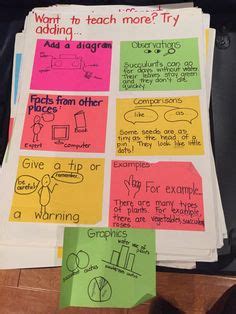 Want to teach more? Try
adding...
Add a diagram
Observations
Succulunts can go
for days without water.
Their leaves stay green
and they don't die
quickly.
Facts from other
places:
Expert
book
computer
Comparisons
like
as
Some seeds are as
tiny as the head of a
pin. They look like little
dots!
Give a tip or
a warning
be careful!
remember..
Examples
For example..
There are many types
of plants. For example,
there are vegetables, succulents
Graphics
water use of
plants